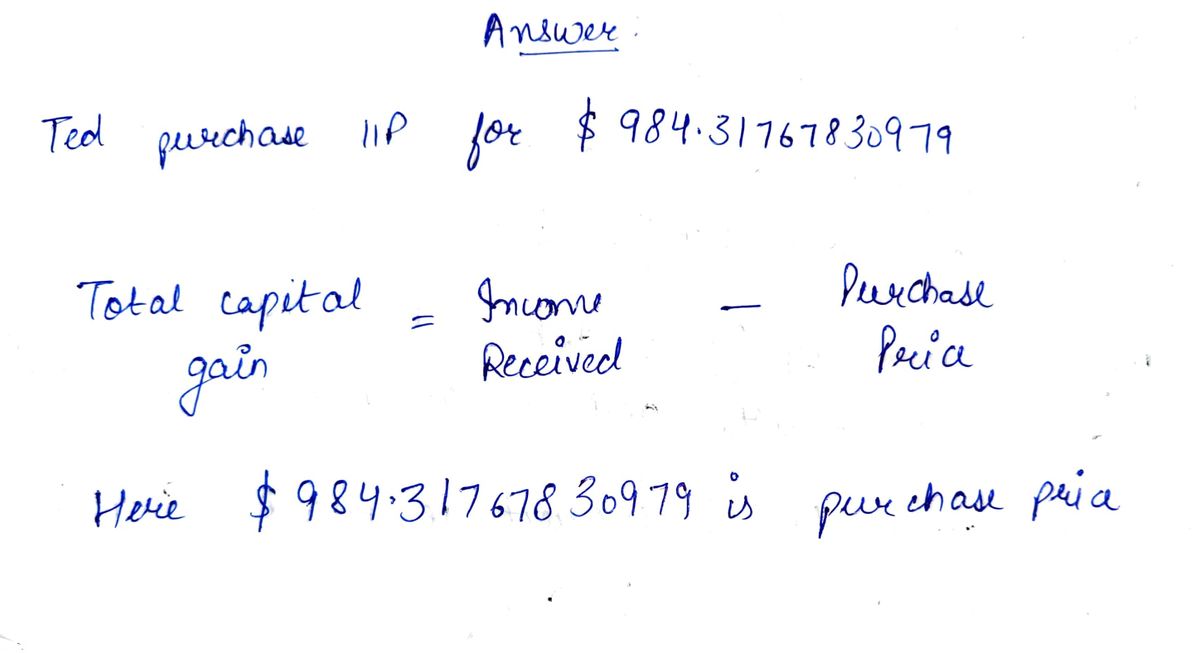 Answer :
Ted purchase 11P for $ 984.31767830979
Total capital gain = Income Received - Purchase Price
Here $ 984.31767830979 is purchase price